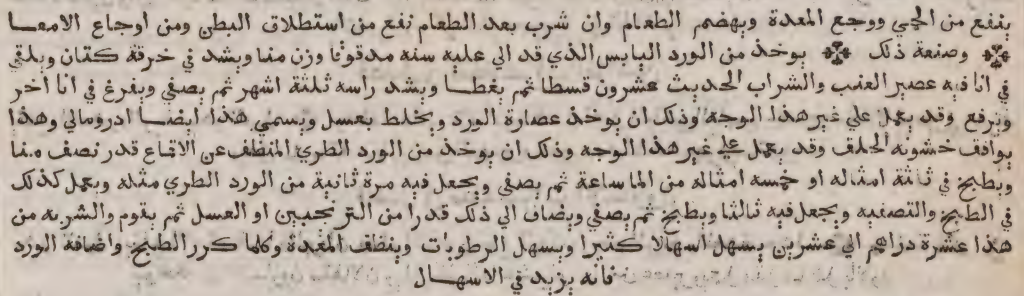 ينفع من الحمي ووجع المعدة ويهضم الطعام وان شرب بعد الطعام نفع من استطلاق البطن ومن اوجاع الامعا
وصنعة ذلك يوخذ من الورد اليابس الذي قد اتي عليه سنه مدقوقا وزن منا ويشد في خرقة كتان ويلقي
في انا فيه عصير العنب والشراب الحديث عشرون قسطا ثم يغطا ويشد راسه ثلثة اشهر ثم يصفي ويفرغ في انا اخر
ويرفع وقد يعمل علي غير هذا الوجه وذلك ان يوخذ عصارة الورد ويخلط بعسل ويسمي هذا ايضا ادرومالي وهذا
يوافق خشونه الحلق وقد يعمل علي غير هذا الوجه وذلك ان يوخذ من الورد الطري المنظف عن الاقماع قدر نصف منا
ويطبخ في ثلثة امثاله او خمسه امثاله من الما ساعة ثم يصفي ويجعل فيه مرة ثانية من الورد الطري مثله ويعمل كذلك
في الطبخ والتصفيه ويجعل فيه ثالثا ويطبخ ثم يصفي ويضاف الي ذلك قدرا من الترنجبين او العسل ثم يقوم والشربه من
هذا عشرة دراهم الي عشرين يسهل اسهالا كثيرا ويسهل الرطوبات وينظف المعدة وكلما كرر الطبخ واضافة الورد
فانه يزيد في الاسهال